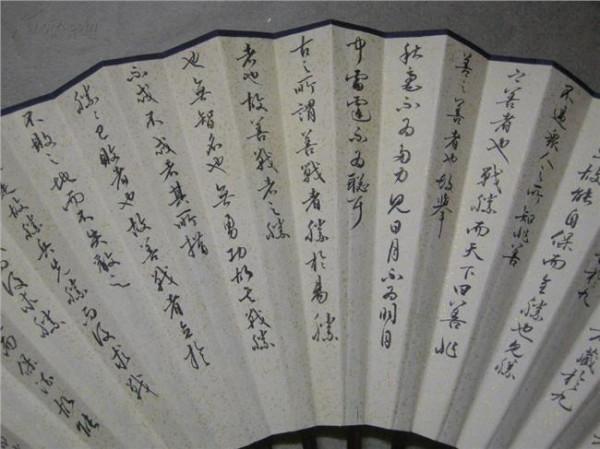 藏於九
故能自保而全勝也見勝
不過衆人之所知非善
之善者也戰勝而天下曰善非
善之善者也故舉
秋毫不為多力見日月不為明目
雷霆不為聰耳
古之所謂善戰者勝於易勝
者也故善戰者之勝
也無智名也無勇功故其戰勝
不忒不忒者其所措
勝勝已敗者也故善戰者立於
不敗之地而不失敵之
是故勝兵先勝而後求戰
後求勝
而保法故能